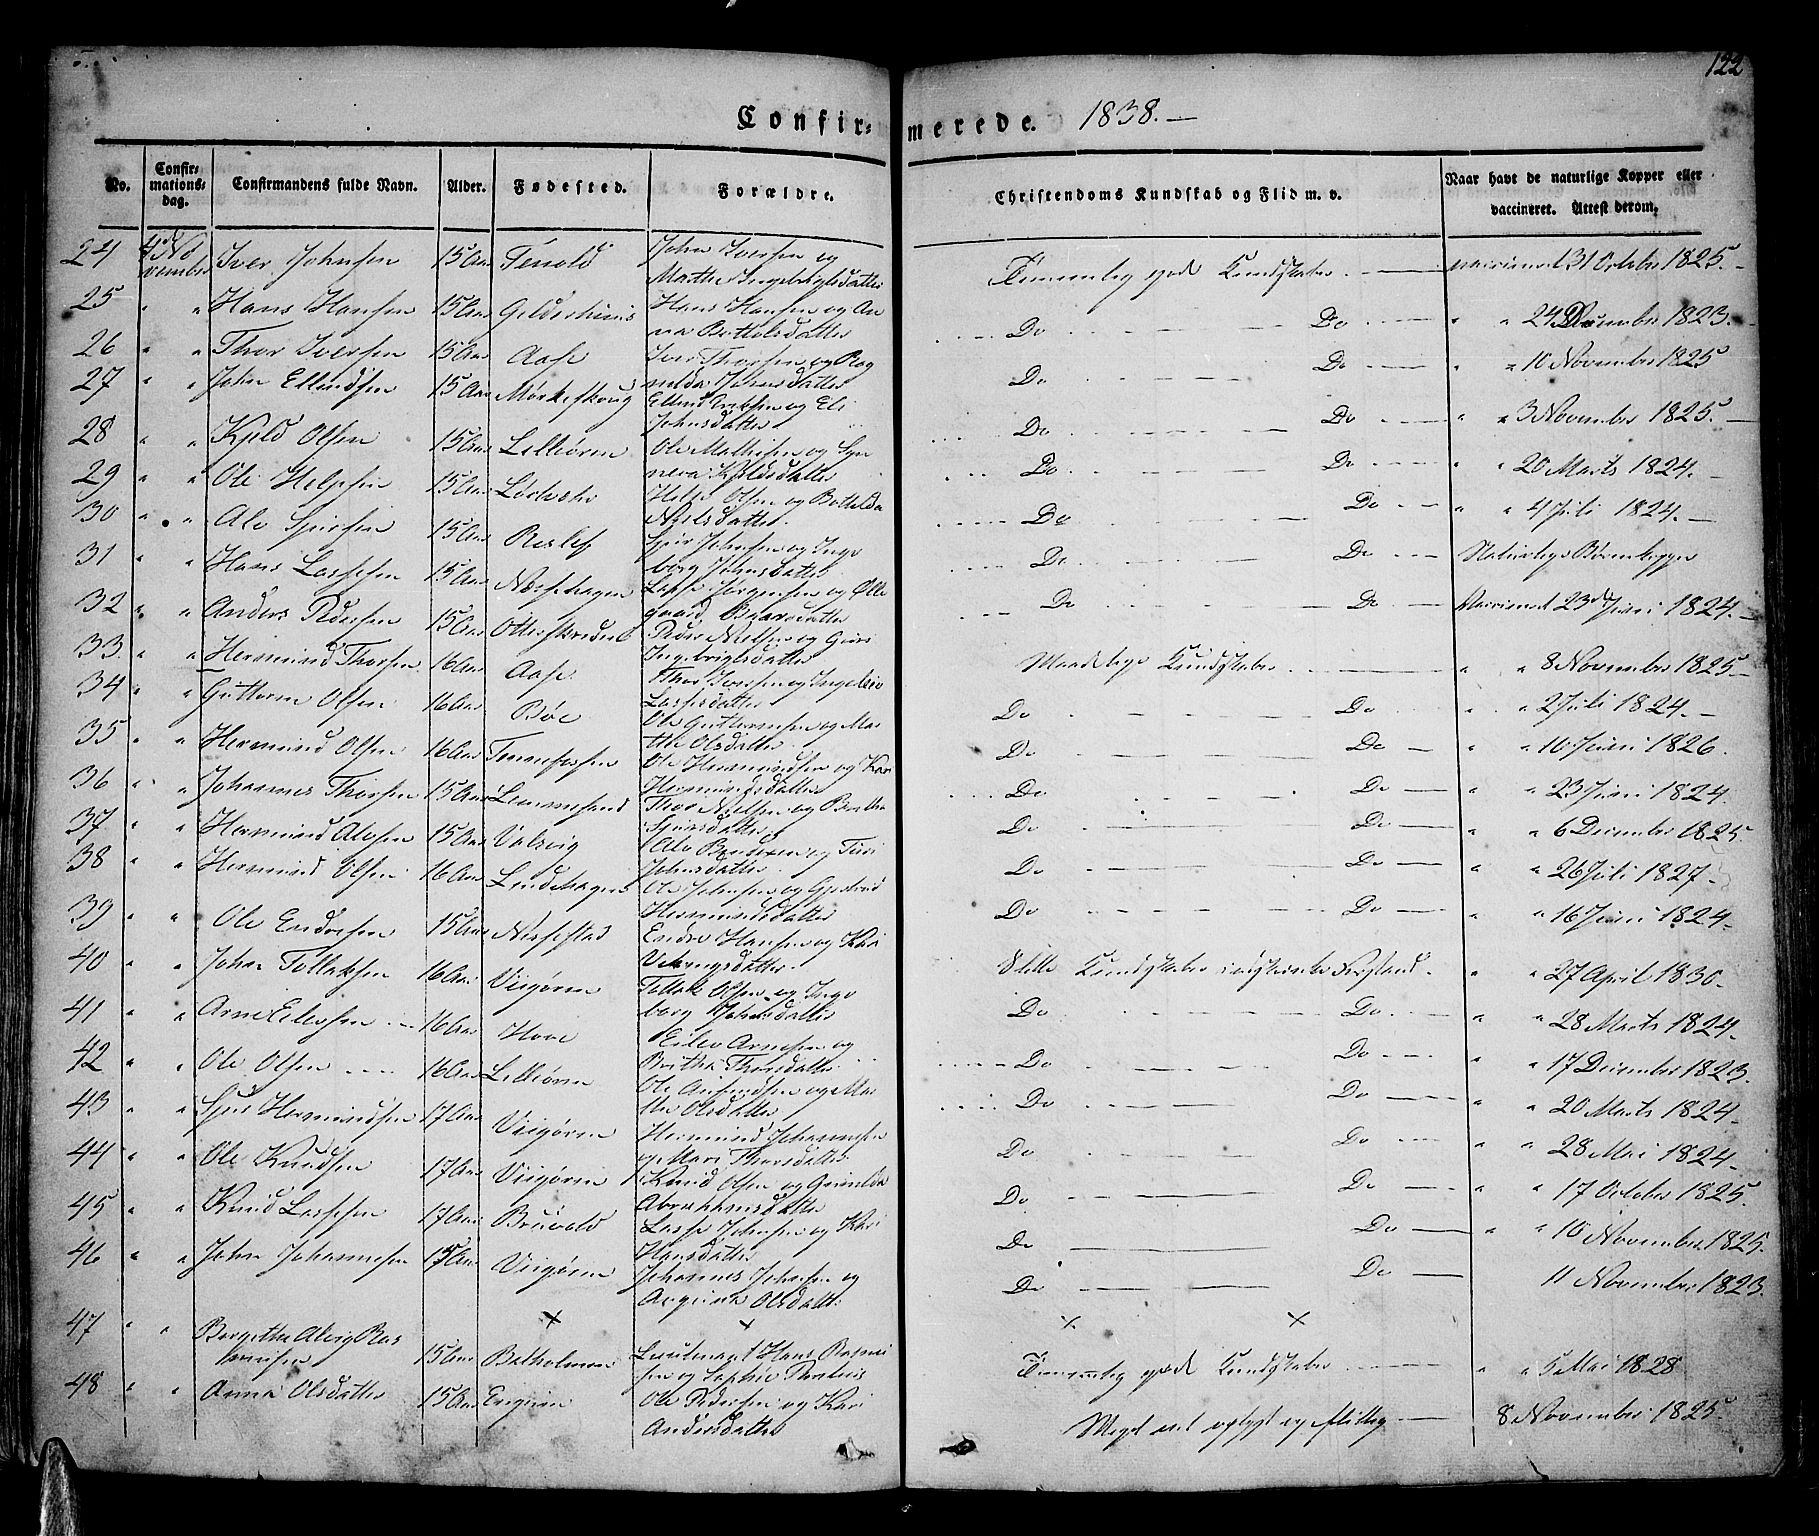 122
Confirmerede. 1838. —
No. Confirmationsdag. Confirmandens fulde Navn. Alder. Fødested. Forældre. Christendoms Kundskab og Flid m. v. Naar havt de naturlige Kopper eller vaccineret. Attest derom.
24 4de November Iver Johnsen 15 Aar Tenold John Iversen og Martha Ingebrigtsdatter Temmelig gode Kundskaber — vaccineret 31 October 1825. —
25 " " Hans Hansen 15 Aar Hans Hansen og Anna Do Do " " 24 December 1823. —
26 " " Thor Iversen 15 Aar Aase Iver Thorsen og Ragnelda Johnsdatter Do Do " " 10 November 1825
27 " " John Ellendsen 15 Aar Mørkeskoug Ellend Eriksen og Eli Johnsdatter Do Do " " 3 November 1825. —
28 " " Kjeld Olsen 15 Aar Lilleøren Ole Mathisen og Synneva Kjeldsdatter Do Do " " 20 Marts 1824. —
29 " " Ole Helgesen 15 Aar Helge Olsen og Botholda Nielsdatter. Do Do " " 4 Juli 1824. —
30 " " Alv Sjursen 15 Aar Sjur Johnsen og Ingeborg Johnsdatter Do Do Naturlige Børnekopper
31 " " Hans Lassesen 15 Aar Nessehagen Lasse Jørgensen og Ølle Do Do Vaccineret 23de Juni 1824. —
32 " " Anders Pedersen 15 Aar Peder Nielsen og Guri Ingebrigtsdatter Maadelige Kundskaber " " 8 November 1825 —
33 " " Hermund Thorsen 16 Aar Aase Thor Iversen og Ingeleiv Lassesdatter Do Do " " 2 Juli 1824. —
34 " " Guttorm Olsen 16 Aar Bøe Ole Guttormsen og Martha Olsdatter. Do Do " " 10 Juni 1826.
35 " " Hermund Olsen 16 Aar Ole Hermundsen og Kari Hermundsdatter Do Do " " 23 Juni 1824.
36 " " Johannes Thorsen 15 Aar Thor Nielsen og Bertha Sjursdatter Do Do " " 6 December 1825.
37 " " Hermund Alvsen 15 Aar Valsvig Alv og Turi Johnsdatter. Do Do " " 26 Juli 1827.
38 " " Hermund Olsen 16 Aar Lindehagen Ole Johnsen og Gjertrud Hermundsdatter Do Do " " 16 Juni 1824.
39 " " Ole Endresen 15 Aar Nessestad Endre Hansen og Kari Slette Kundskaber Forstand. " " 27 April 1830.
40 " " Johan Tollaksen 16 Aar Viigøren Tollak Olsen og Ingeborg Johnsdatter Do Do " " 28 Marts 1824.
41 " " Arne Eilevsen 16 Aar Hove Eilev Arnesen og Britha Thorsdatter Do Do " " 17 December 1823.
42 " " Ole Olsen 16 Aar Lilleøren Ole og Martha Olsdatter Do Do " " 20 Marts 1824.
43 " " Sjur Hermundsen 17 Aar Viigøren Hermund Johannesen og Mari Thorsdatter Do Do " " 28 Mai 1824.
44 " " Ole Knudsen 17 Aar Viigøren Knud Olsen og Gunilda Abrahamsdatter Do Do " " 17 October 1825.
45 " " Knud Lassesen 17 Aar Bruvold Lasse Johnsen og Kari Hansdatter Do Do " " 10 November 1825.
46 " " John Johannesen 15 Aar Viigøren Johannes Johnsen og Olsdatt: Do Do 11 November 1823.
× × × ×
47 " " Bergetha Alvig Rasmusen 15 Aar Betholmen Lieutenant Hans Rasmusen og Sophie Temmelig gode Kundskaber " " 5 Mai 1828
48 " " Anna Olsdatter 15 Aar Ole Pedersen og Kari Andersdatter Meget vel oplyst og flittig — 8 November 1825.